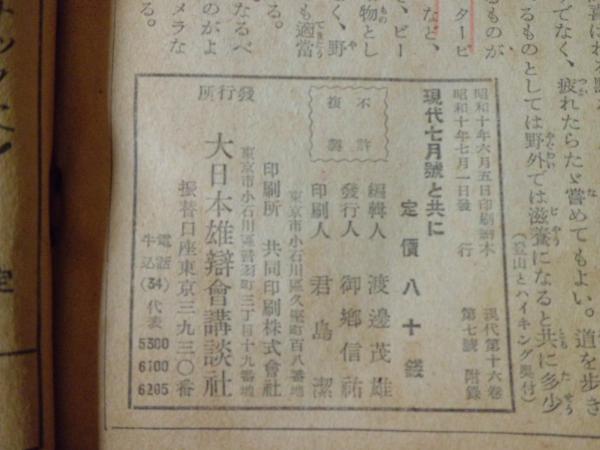 喜ばれる點
でなく、疲れたらたゞ嘗めてもよい。道を歩き
るものとしては野外では滋養になると共に多少
(登山とハイキング奥付)
るものが
タービ
など、
ビー
物とし
く、野
も適當
る。
なるべ
のがよ
メラな
る。
昭和十年六月五日印刷納本
昭和十年七月一日發行
現代第十六卷
第七號附錄
現代七月號と共に
定價八十錢
不許
複製
編輯人 渡邊茂雄
發行人 御鄕信祐
印刷人 君島潔
東京市小石川區久堅町百八番地
印刷所 共同印刷株式會社
東京市小石川區音羽町三丁目十九番地
發行所
大日本雄辯會講談社
振替口座東京三九三〇番
電話
牛込(34)代表
5300
6100
6205
定